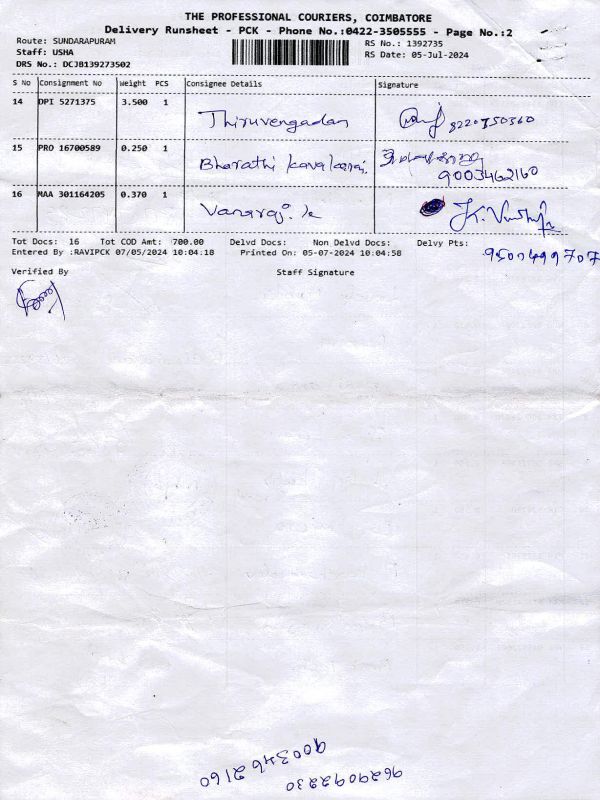 THE PROFESSIONAL COURIERS, COIMBATORE
Delivery Runsheet - PCK - Phone No.:0422-3505555 - Page No.:2
Route: SUNDARAPURAM RS No.: 1392735
Staff: USHA RS Date: 05-Jul-2024
DRS No.: DCJB139273502
S No Consignment No Weight PCS Consignee Details Signature
14 DPI 5271375 3.500 1 Thiruvengadan 8220750360
15 PRO 16700589 0.250 1 Bharathi
9003462160
16 MAA 301164205 0.370 1 Vanaraj. k
Tot Docs: 16 Tot COD Amt: 700.00 Delvd Docs: Non Delvd Docs: Delvy Pts:
Entered By :RAVIPCK 07/05/2024 10:04:18 Printed On: 05-07-2024 10:04:58
Verified By Staff Signature
9003462160
9629092230